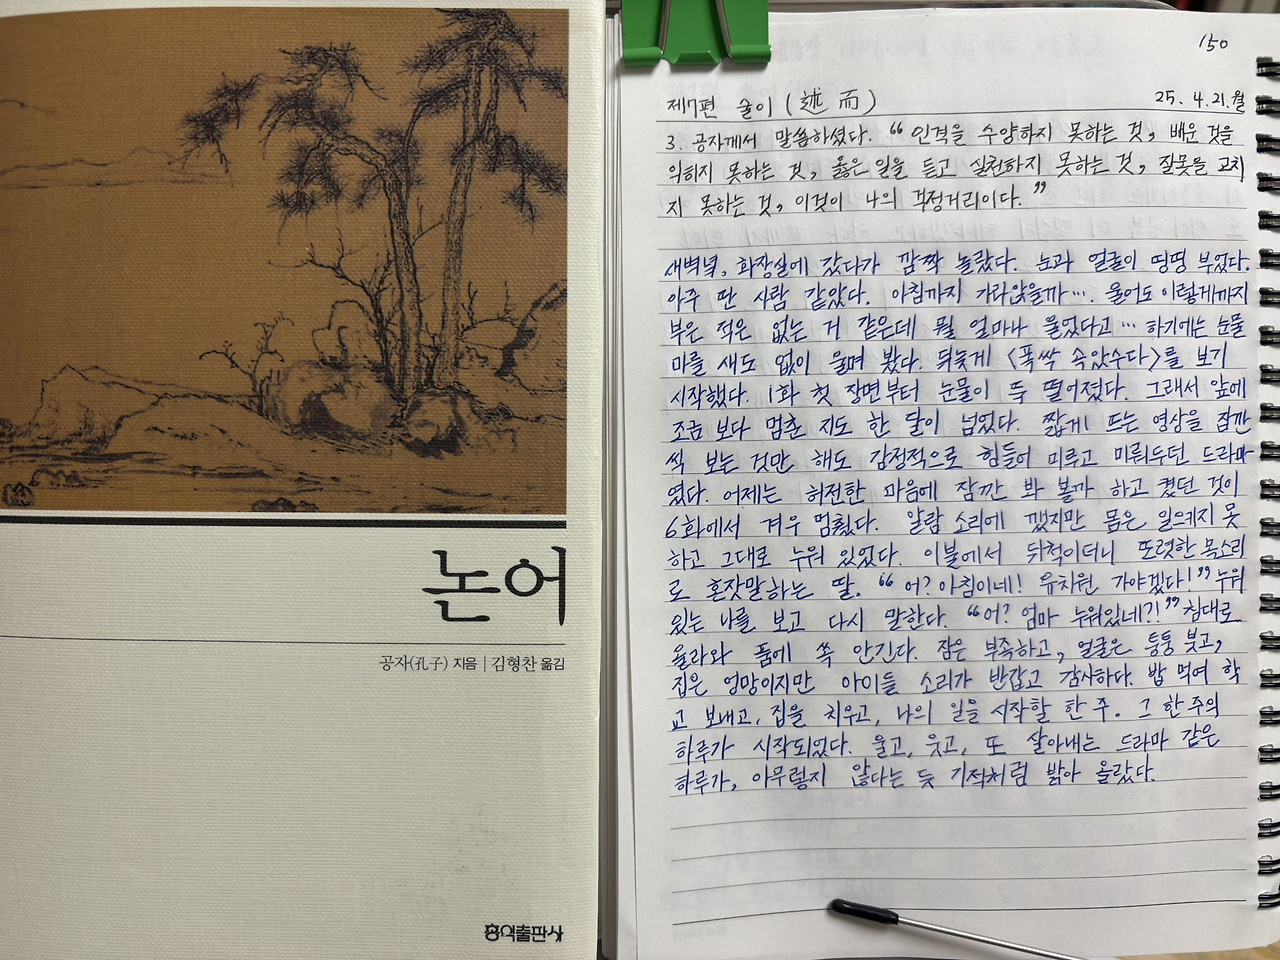 논어
공자(孔子) 지음 | 김형찬 옮김
홍익출판사
150
제7편 술이 (述而)
25. 4. 21. 월
3. 공자께서 말씀하셨다. “인격을 수양하지 못하는 것, 배운 것을
익히지 못하는 것, 옳은 일을 듣고 실천하지 못하는 것, 잘못을 고치
지 못하는 것, 이것이 나의 걱정거리이다.”
새벽녘, 화장실에 갔다가 깜짝 놀랐다. 눈과 얼굴이 띵띵 부었다.
아주 딴 사람 같았다. 아침까지 가라앉을까…. 울어도 이렇게까지
부은 적은 없는 거 같은데 뭘 얼마나 울었다고… 하기에는 눈물
마를 새도 없이 울며 봤다. 뒤늦게 <폭싹 속았수다>를 보기
시작했다. 1화 첫 장면부터 눈물이 뚝 떨어졌다. 그래서 앞에
조금 보다 멈춘 지도 한 달이 넘었다. 짧게 뜨는 영상을 잠깐
씩 보는 것만 해도 감정적으로 힘들어 미루고 미뤄두던 드라마
였다. 어제는 허전한 마음에 잠깐 봐 볼까 하고 켰던 것이
6화에서 겨우 멈췄다. 알람 소리에 깼지만 몸은 일으키지 못
하고 그대로 누워 있었다. 이불에서 뒤척이더니 또렷한 목소리
로 혼잣말하는 딸. “어? 아침이네! 유치원 가야겠다!” 누워
있는 나를 보고 다시 말한다. “어? 엄마 누워있네?!” 침대로
올라와 품에 쏙 안긴다. 잠은 부족하고, 얼굴은 퉁퉁 붓고,
집은 엉망이지만 아이들 소리가 반갑고 감사하다. 밥 먹여 학
교 보내고, 집을 치우고, 나의 일을 시작할 한 주. 그 한 주의
하루가 시작되었다. 울고, 웃고, 또 살아내는 드라마 같은
하루가, 아무렇지 않다는 듯 기적처럼 밝아 올랐다.